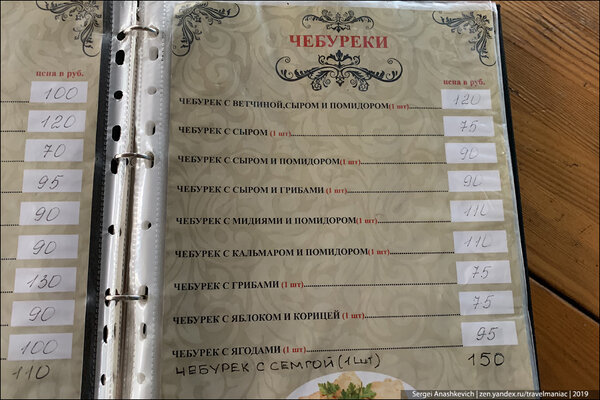 цена в руб.
100
120
70
95
90
90
130
90
100
110
ЧЕБУРЕКИ
цена в руб.
ЧЕБУРЕК С ВЕТЧИНОЙ,СЫРОМ И ПОМИДОРОМ(1 шт) 120
ЧЕБУРЕК С СЫРОМ (1 шт) 75
ЧЕБУРЕК С СЫРОМ И ПОМИДОРОМ(1 шт) 90
ЧЕБУРЕК С СЫРОМ И ГРИБАМИ (1 шт) 90
ЧЕБУРЕК С МИДИЯМИ И ПОМИДОРОМ(1 шт) 110
ЧЕБУРЕК С КАЛЬМАРОМ И ПОМИДОРОМ(1 шт) 110
ЧЕБУРЕК С ГРИБАМИ (1 шт) 75
ЧЕБУРЕК С ЯБЛОКОМ И КОРИЦЕЙ (1 шт) 75
ЧЕБУРЕК С ЯГОДАМИ (1 шт) 95
ЧЕБУРЕК С СЕМГОЙ (1 шт) 150
Sergei Anashkevich | zen.yandex.ru/travelmaniac | 2019